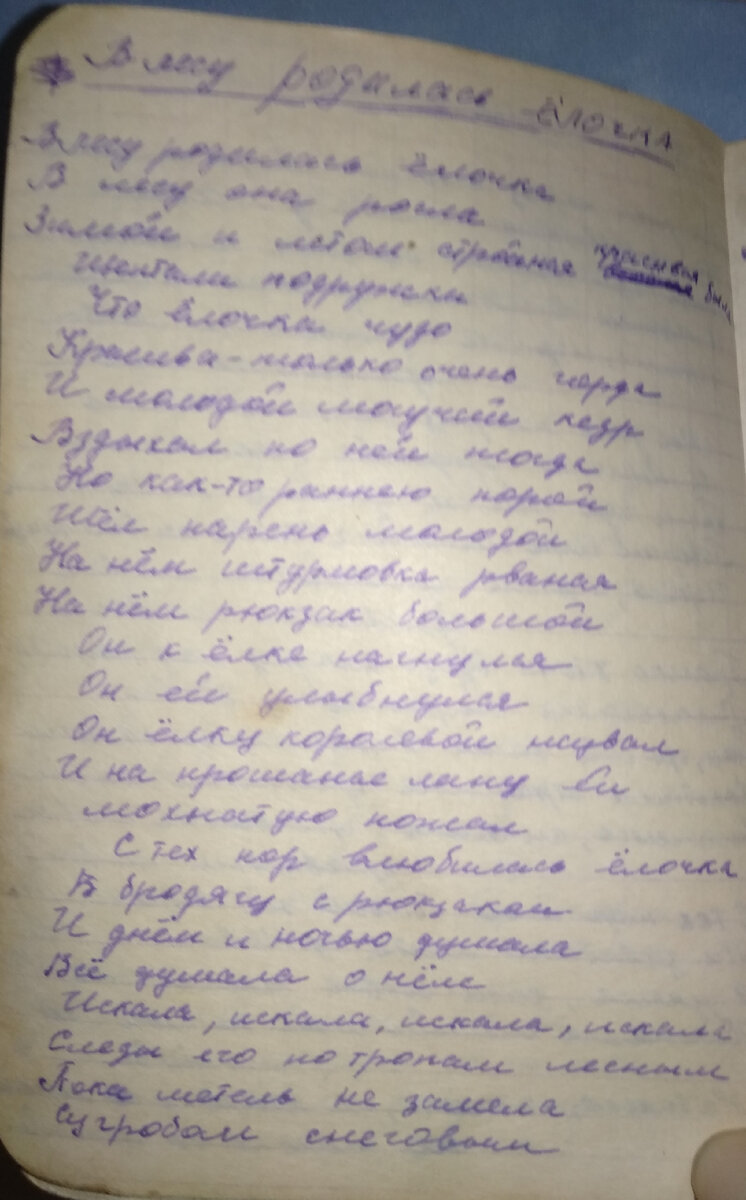 В лесу родилась ёлочка
В лесу родилась ёлочка
В лесу она росла
Зимой и летом стройная красивая была
Шептали подружки
Что ёлочка чудо
Красива-только очень горда
И молодой могучий кедр
Вздыхал по ней тогда
Но как-то раннею порой
Шёл парень молодой
На нём штурмовка рваная
На нём рюкзак большой
Он к ёлке нагнулся
Он ей улыбнулся
Он ёлку королевой назвал
И на прощанье лапу ей
мохнатую пожал
С тех пор влюбилась ёлочка
В бродягу с рюкзаком
И днём и ночью думала
Всё думала о нём
Искала, искала, искала, искала
Следы его по тропам лесным
Пока метель не замела
Сугробом снеговым